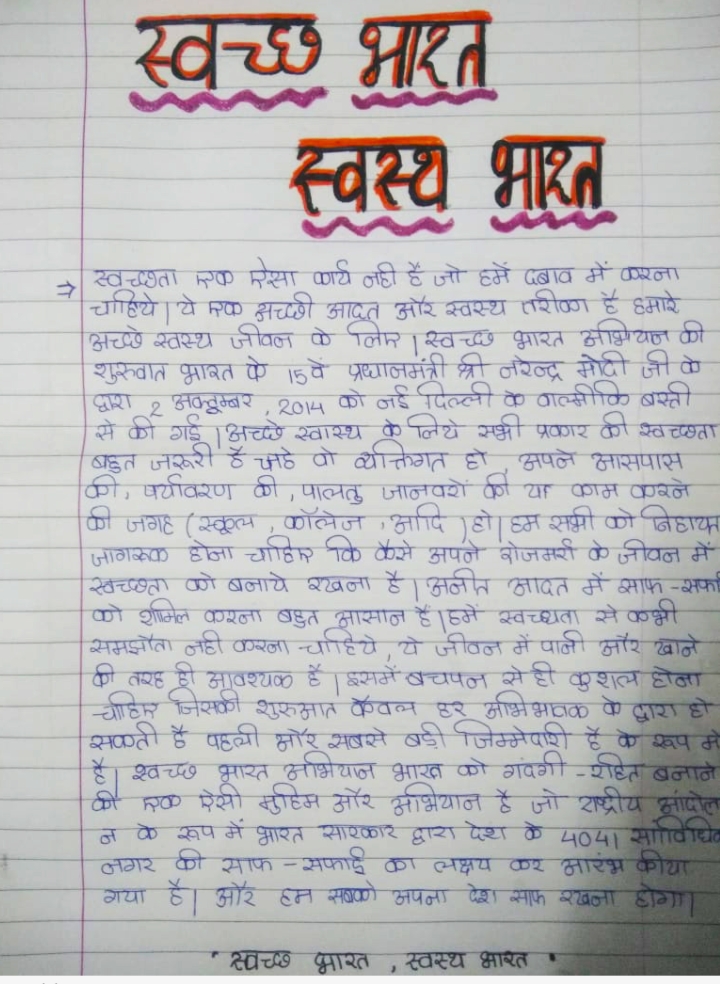 स्वच्छ भारत
स्वस्थ भारत
⇒ स्वच्छता एक ऐसा कार्य नही है जो हमें दबाव में करना
चाहिये। ये एक अच्छी आदत और स्वस्थ तरीका है हमारे
अच्छे स्वस्थ जीवन के लिए। स्वच्छ भारत अभियान की
शुरुवात भारत के 15वें प्रधानमंत्री श्री नरेन्द्र मोदी जी के
द्वारा 2 अक्टुम्बर, 2014 को नई दिल्ली के वाल्मीकि बस्ती
से की गई। अच्छे स्वास्थ के लिये सभी प्रकार की स्वच्छता
बहुत जरूरी है चाहे वो व्यक्तिगत हो, अपने आसपास
की, पर्यावरण की, पालतु जानवरों की या काम करने
की जगह (स्कूल, कॉलेज, आदि) हो। हम सभी को निहायत
जागरूक होना चाहिए कि कैसे अपने रोजमर्रा के जीवन में
स्वच्छता को बनाये रखना है। आदत में साफ-सफा
को शामिल करना बहुत आसान है। हमें स्वच्छता से कभी
समझौता नही करना चाहिये, ये जीवन में पानी और खाने
की तरह ही आवश्यक है। इसमें बचपन से ही कुशल होना
चाहिए जिसकी शुरुआत केवल हर अभिभावक के द्वारा हो
सकती है पहली और सबसे बड़ी जिम्मेपारी है के रूप में
है। स्वच्छ भारत अभियान भारत को गंदगी-रहित बनाने
की एक ऐसी मुहिम और अभियान है जो राष्ट्रीय आंदोल
न के रूप में भारत सारकार द्वारा देश के 4041 सांविधिक
नगर की साफ-सफाई का लक्षय कर आरंभ कीया
गया है। और हम सबको अपना देश साफ रखना होगा।
" स्वच्छ भारत, स्वस्थ भारत "